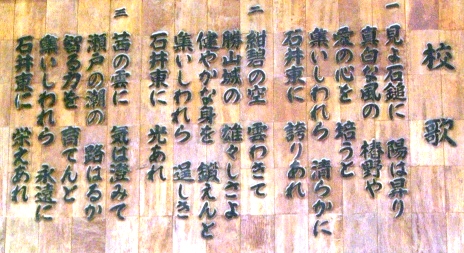 校歌
一 見よ石鎚に 陽は昇り
真白き風の 椿野や
愛の心を 培うと
集いしわれら 清らかに
石井東に 誇りあれ
二 紺碧の空 雲わきて
勝山城の 雄々しさよ
健やかな身を 鍛えんと
集いしわれら 逞しき
石井東に 光あれ
三 茜の雲に 気は澄みて
瀬戸の潮の 路はるか
智る力を 育てんと
集いしわれら 永遠に
石井東に 栄えあれ